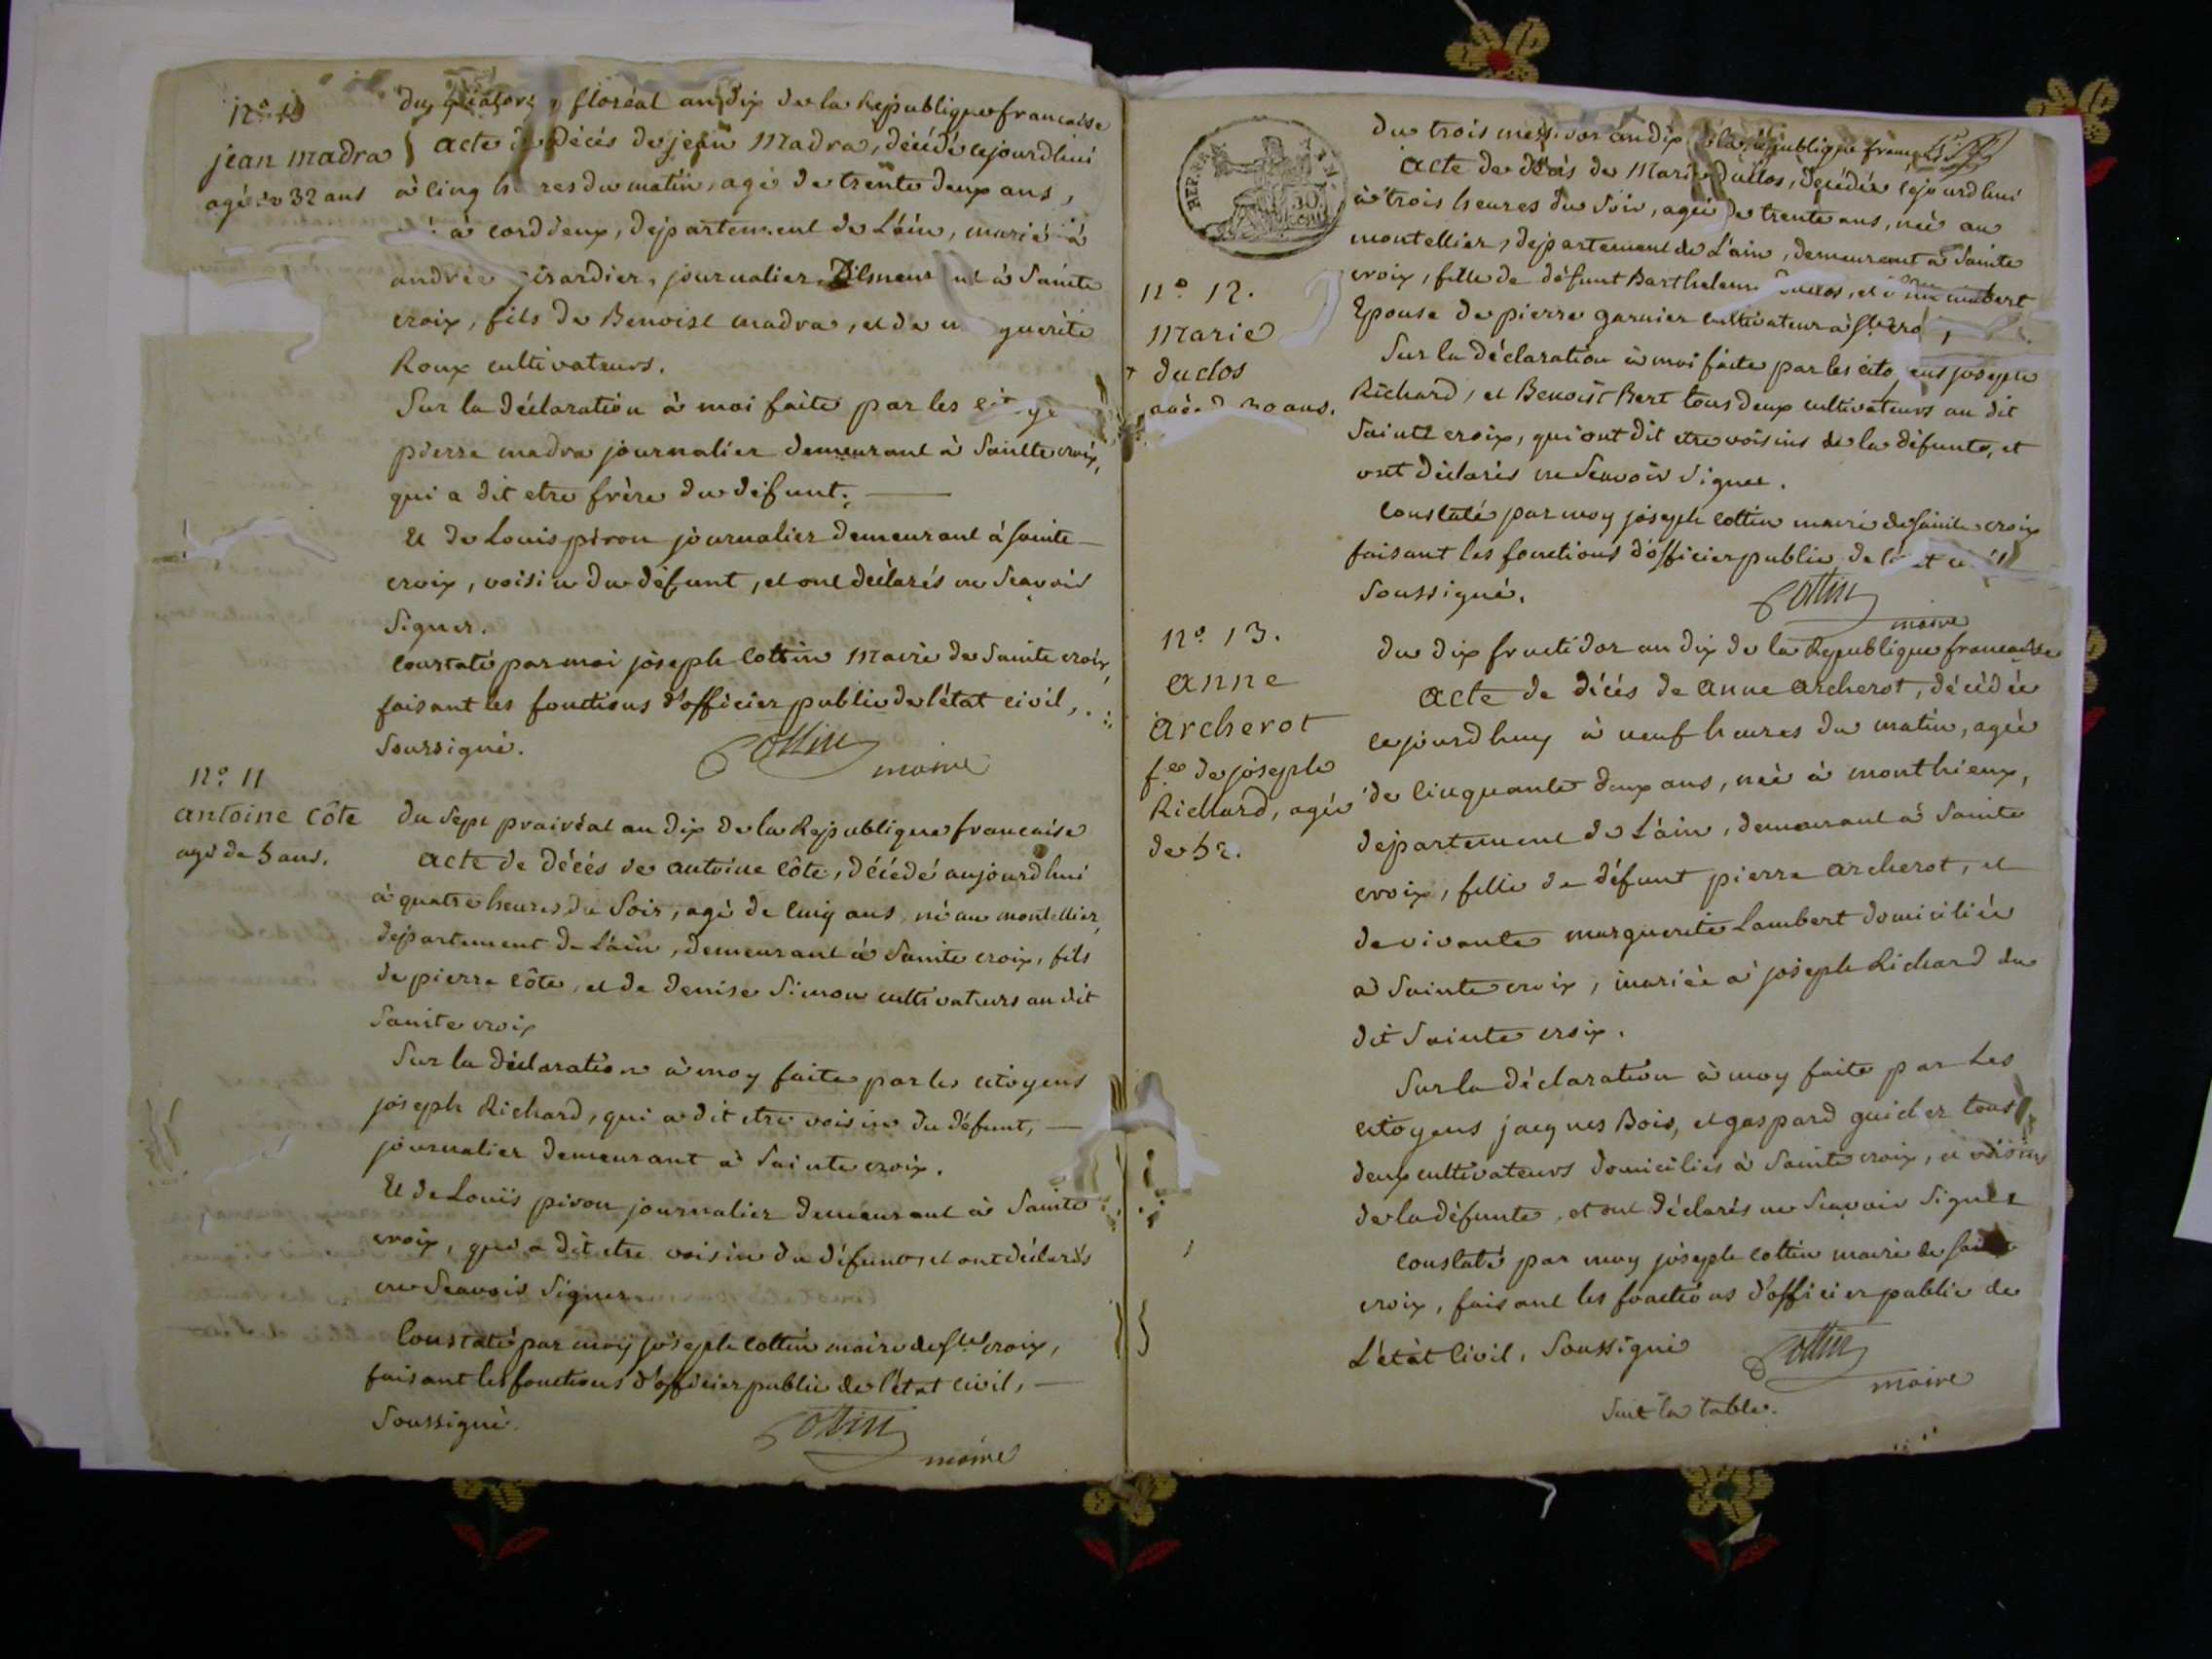 n.o 10
jean madra
agé de 32 ans
du quatorze floréal an dix de la Republique francaise
acte de décés de jean Madra, décédé cejourdhui
à cinq h res du matin, agé de trente deux ans,
à corddeux, departement de L'áin, marié à
andrée girardier, journalier, demeur nt à Sainte
croix, fils de Benoist madra, et de m guerite
Roux cultivateurs.
Sur la déclaration à moi faite par les
pierre madra journalier demeurant à Saintte croix,
qui a dit etre frère du défunt.
Et de Louis pivon journalier demeurant à sainte
croix, voisin du défunt, et ont declarés ne Scavoir
Signer.
Constaté par moi joseph Cottin Maire de Sainte croix,
faisant les fonctions d'officier public de l'état civil,
Soussigné.
Cottin
maire
n.o 11
antoine Côte
agé de 5 ans.
du Sept prairéal an dix de la Republique francaise
acte de décés de antoine Côte, décédé aujourdhui
à quatre heures du Soir, agé de cinq ans, né au montellier,
departement de L'áin, demeurant à Sainte croix, fils
de pierre Côte, et de denise Simon cultivateurs au dit
Sainte croix
Sur la déclaration à moy faite par les citoyens
joseph Richard, qui a dit etre voisin du défunt,
journalier demeurant à Sainte croix.
Et de Louis pivon journalier demeurant à Sainte
croix, qui a dit etre voisin du défunt, et ont déclarés
ne Scavoir Signer
Constaté par moy joseph Cottin maire de Ste croix,
faisant les fonctions d'officier public de l'état civil,
Soussigné.
Cottin
maire
REP. FRA
30
CENT
du trois messidor an dix de la république
acte de décés de Marie duclos, décédée cejourdhui
à trois heures du Soir, agée de trente ans, née au
montellier, departement de L'ain, demeurant à Sainte
croix, fille de défunt Barthelemi duclos, et
Epouse de pierre garnier cultivateur à Ste cro
n.o 12.
Marie
duclos
agée d 30 ans.
Sur la déclaration à moi faite par les cito ens joseph
Richard, et Benoist Bert tous deux cultivateurs au dit
Sainte croix, qui ont dit etre voisins de la défunte, et
ont déclarés ne Scavoir Signer.
Constaté par moy joseph Cottin maire de Sainte croix
faisant les fonctions d'officier public de l' t
Soussigné.
Cottin
maire
n.o 13.
anne
archerot
fee de joseph
Richard, agée
de 52.
du dix fructidor an dix de la Republique francaise
acte de décés de anne archerot, décédée
cejourdhuy à neuf heures du matin, agée
de cinquante deux ans, née à monthieux,
departement de L'áin, demeurant à Sainte
croix, fille de défunt pierre archerot, et
de vivante marguerite Lambert domiciliée
à Sainte croix, mariée à joseph Richard du
dit Sainte croix.
Sur la déclaration à moy faite par Les
citoyens jacques Bois, et gaspard guicher tous
deux cultivateurs domiciliés à Sainte croix, et voisins
de la défunte, et ont déclarés ne Scavoir Signer
Constaté par moy joseph Cottin maire de Sainte
croix, faisant les fonctions d'officier public de
L'état Civil, Soussigné
Cottin
maire
Suit la table.